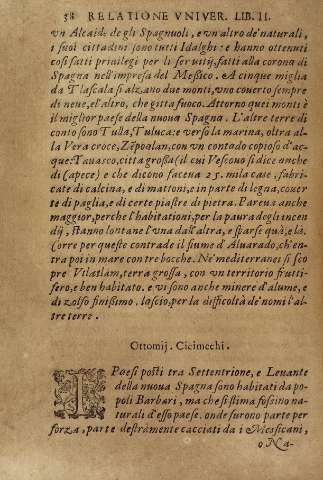 58 RELATIONE VNIVER. LIB. II.
vn Alcaide de gli Spagnuoli, e vn'altro de' naturali,
i suoi cittadini sono tutti Idalghi: e hanno ottenuti
cosi fatti priuilegi per li seruitij, fatti alla corona di
Spagna nell'impresa del Messico. A cinque miglia
da Tlascala si alzano due monti, vno couerto sempre
di neue, el'altro, che gitta fuoco. Attorno quei monti è
il miglior paese della nuoua Spagna. L'altre terre di
conto sono Tulla, Tuluca: e verso la marina, oltra al-
la Vera croce, Zēpoalan, con vn contado copioso d'ac-
que: Tauasco, città grossa (il cui Vescouo si dice anche
di (apece) e che dicono facena 25. mila case, fabri-
cate di calcina, e di mattoni, e in parte di legna, couer
te di paglia, e di certe piastre di pietra. Pareua anche
maggior, perche l'habitationi, per la paura degli incen
dij, stanno lontane l'vna dall'altra, e sparse quà, e là.
Corre per queste contrade il fiume d'Aluarado, ch'en-
tra poi in mare con tre bocche. Ne' mediterranei si sco
pre Vilatlam, terra grossa, con vn territorio frutti-
fero, e ben habitato. e vi sono anche minere d'alume, e
di zolfo finissimo. lascio, per la difficoltà de' nomi l'al-
tre terre.
Ottomij. Cicimechi.
I Paesi posti tra Settentrione, e Leuante
della nuoua Spagna sono habitati da po-
poli Barbari, ma che si stima fossino na-
turali d'esso paese. onde furono parte per
forza, parte destramente cacciati da i Messicani,
o Na-